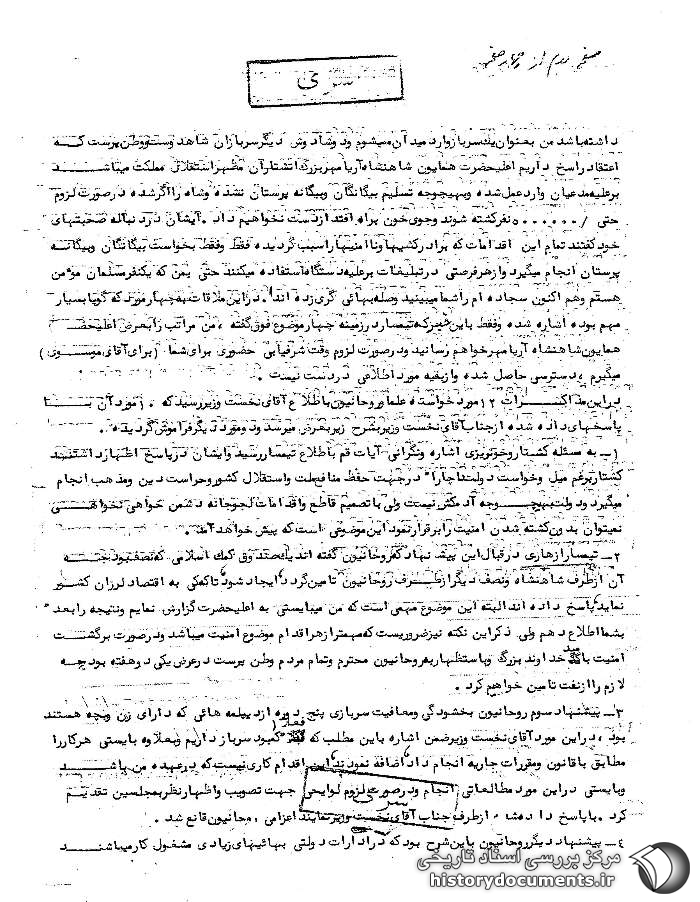 صفحه دوم از چهار صفحه
سری
داشته باشد من بعنوان یک سرباز وارد میدان میشوم ودوشادوش دیگر سربازان شاهدوست ووطن پرست که
اعتقاد راسخ داریم اعلیحضرت همایون شاهنشاه آریامهر بزرگ ارتشتاران مظهر استقلال مملکت میباشند
برعلیه مدعیان وارد عمل شده وبهیچوجه تسلیم بیگانگان وبیگانه پرستان نشده وشاه را اگر شده درصورت لزوم
حتی نفر کشته شوند وجوی خون براه افتد ازدست نخواهیم داد . ایشان درد نباله صحبتهای
خود گفتند تمام این اقدامات که برادرکشیها وناامنیها را سبب گردیده فقط وفقط بخواست بیگانگان وبیگانه
پرستان انجام میگیرد وازهر فرصتی درتبلیغات برعلیه دستگاه استفاده میکنند حتی بمن که یکنفر مسلمان مؤمن
هستم وهم اکنون سجاده ام را شما میبینید وصله بهائی گری زده اند . دراین ملاقات به چهار مورد که گویا بسیار
مهم بوده اشاره شده وفقط باین که تیمسار درزمینه چهار موضوع فوق گفته ، من مراتب را بعرض اعلیحضرت
همایون شاهنشاه آریامهر خواهم رسانید ودرصورت لزوم وقت شرفیابی حضوری برای شما ( برای آقای موسوی )
میگیرم ، دسترسی حاصل شده وازبقیه مورد اطلاعی دردست نیست .
دراین مذاکرات ۱۲ مورد خواسته علما وروحانیون باطلاع آقای نخست وزیر رسید که مورد آن با
پاسخهای داده شده ازجناب آقای نخست وزیر بشرح زیر بعرض میرسد ودومورد دیگر فراموش گردیده .
۱ـ به مسئله کشتار وخونریزی اشاره ونگرانی آیات قم باطلاع تیمسار رسید وایشان درپاسخ اظهار داشتند
کشتار برغم میل وخواست دولت ناچاراً درجهت حفظ منافع ملت واستقلال کشور وحراست دین ومذهب انجام
میگیرد ودولت بهیچوجه آدمکش نیست ولی با تصمیم قاطع واقدامات لجوجانه دشمن خواهی نخواهی
نمیتوان بدون کشته شدن امنیت را برقرار نمود این موضوعی است که پیش خواهد آمد .
۲ـ تیمسار ازهاری درقبال این پیشنهاد که روحانیون گفته اند یک صندوق کمک اسلامی که نصف بودجه
آن ازطرف شاهنشاه ونصف دیگر ازطرف روحانیون تامین گردد ایجاد شود تا کمکی به اقتصاد لرزان کشور
نماید پاسخ داده اند البته این موضوع مهمی است که من میبایستی به اعلیحضرت گزارش نمایم ونتیجه را بعد"
بشما اطلاع دهم ولی ذکر این نکته نیز ضروریست که مهمتر ازهر اقدام موضوع امنیت میباشد ودرصورت برگشت
امنیت بامید خداوند بزرگ وبا استظهار به روحانیون محترم وتمام مردم وطن پرست درعرض یکی دو هفته بودجه
لازم را ازنفت تامین خواهیم کرد .
۳ـ پیشنهاد سوم روحانیون بخشودگی ومعافیت سربازی پنج دوره ازدیپلمه هائی که دارای زن وبچه هستند
بود ، دراین مورد آقای نخست وزیر ضمن اشاره باین مطلب که فعلاً کمبود سرباز داریم وبعلاوه بایستی هرکار را
مطابق با قانون ومقررات جاریه انجام داد اضافه نمودند این اقدام کاری نیست که برعهده من باشد
وبایستی دراین مورد مطالعاتی انجام ودرصورت لزوم لوایحی جهت تصویب واظهارنظر بمجلسین تقدیم
کرد . با پاسخ داده شده ازطرف جناب آقای نخست وزیر نمایند اعزامی روحانیون قانع شد .
سری
۴ـ پیشنهاد دیگر روحانیون باین شرح بود که درادارات دولتی بهائیهای زیادی مشغول کار میباشند
مرکز بررسی اسناد تاریخی
historydocuments.ir